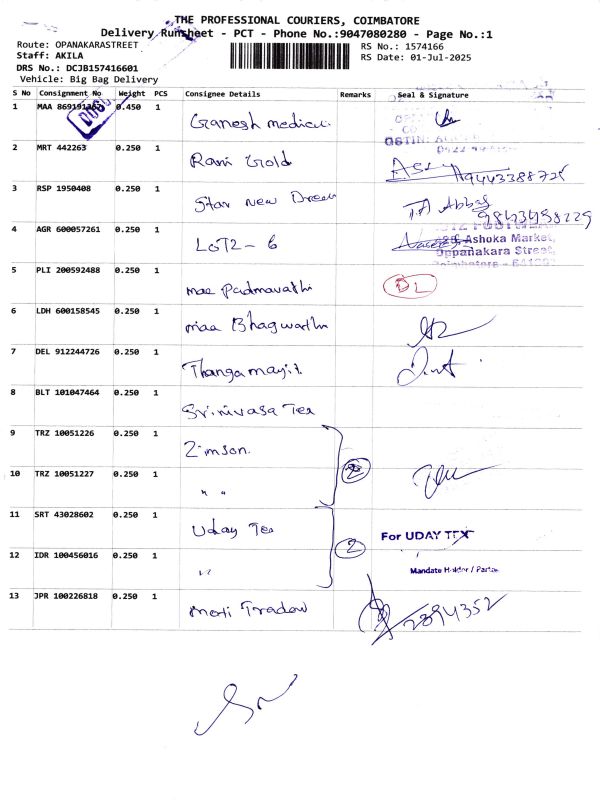 THE PROFESSIONAL COURIERS, COIMBATORE
Delivery Runsheet - PCT - Phone No.:9047080280 - Page No.:1
Route: OPANAKARASTREET
Staff: AKILA
DRS No.: DCJB157416601
Vehicle: Big Bag Delivery
RS No.: 1574166
RS Date: 01-Jul-2025
S No Consignment No Weight PCS Consignee Details Remarks Seal & Signature
1 MAA 0.450 1 Ganesh medical
2 MRT 442263 0.250 1 Rani Gold 9443388725
3 RSP 1950408 0.250 1 Star New Dream T.A Abbas
4 AGR 600057261 0.250 1 LOT2 - 6
Ashoka Market,
Oppanakara Street,
5 PLI 200592488 0.250 1 maa Padmavathi DL
6 LDH 600158545 0.250 1 maa Bhagwathi
7 DEL 912244726 0.250 1 Thangamayil
8 BLT 101047464 0.250 1 Srinivasa Tex
9 TRZ 10051226 0.250 1 Zimson.
10 TRZ 10051227 0.250 1 " " 2
11 SRT 43028602 0.250 1 Uday Tex For UDAY TEX
12 IDR 100456016 0.250 1 " 2
Mandate Holder / Partner
13 JPR 100226818 0.250 1 moti Traders 2394352